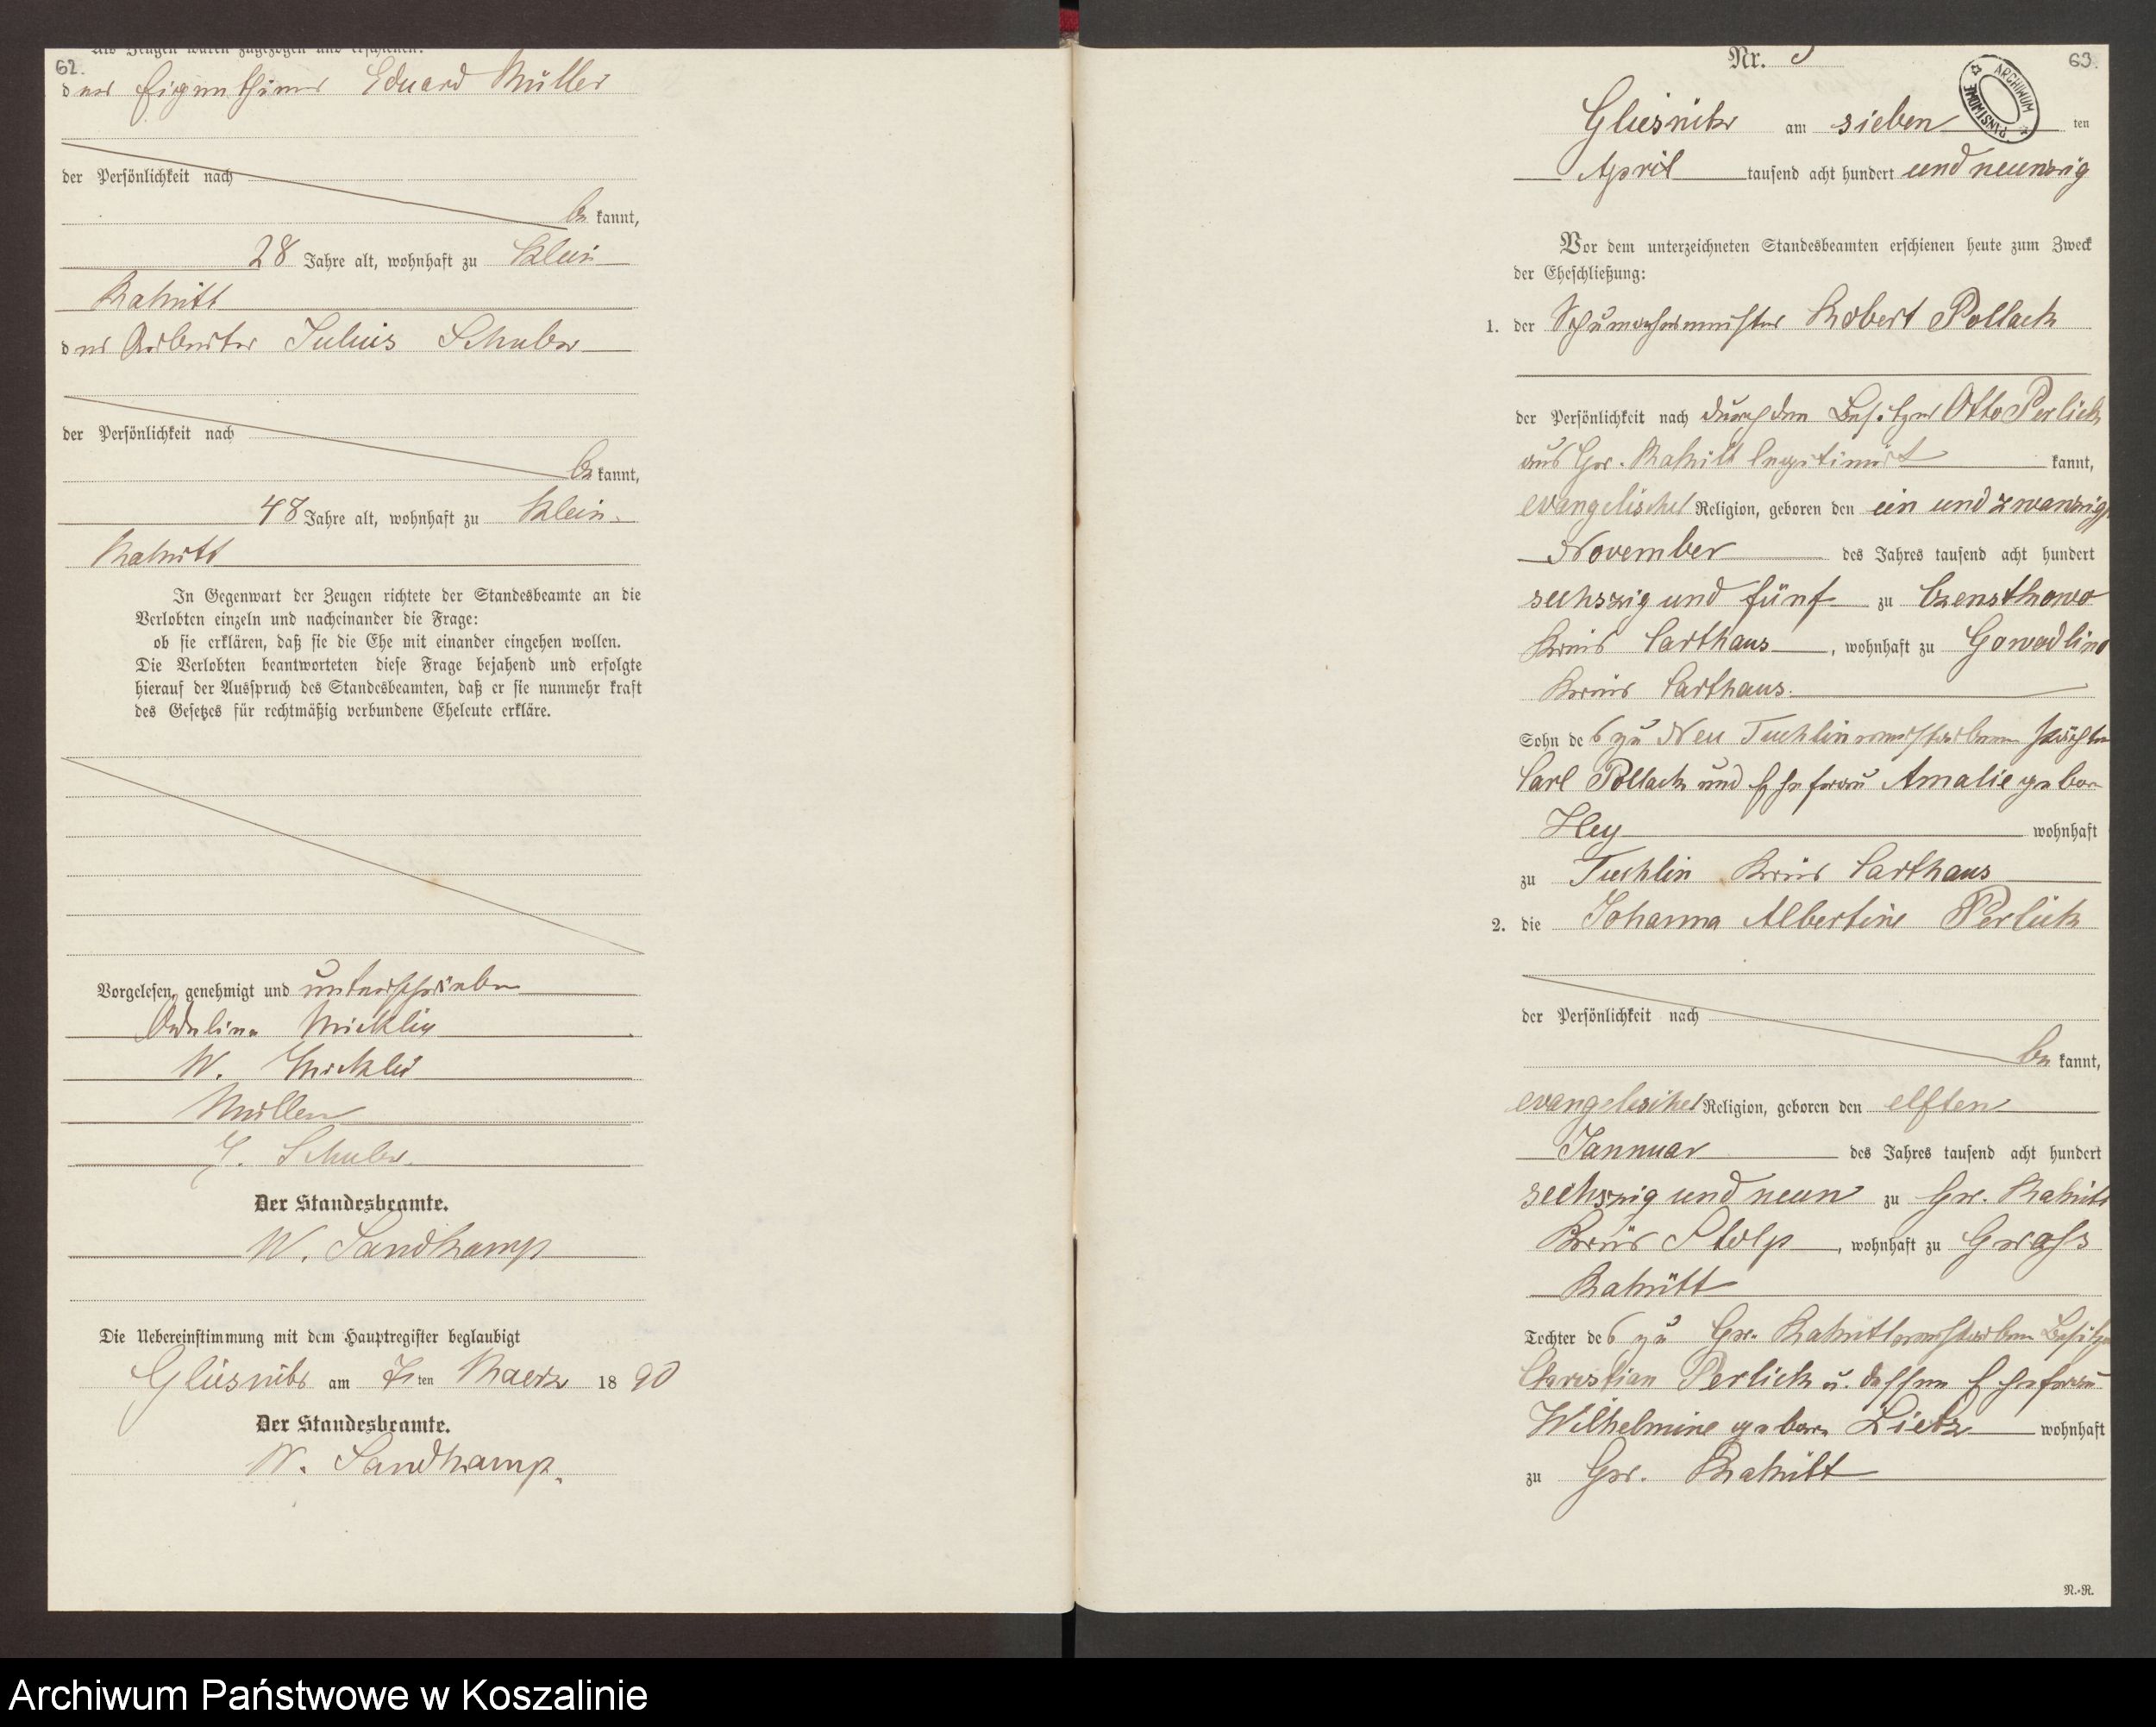 Als Zeugen waren zugezogen und erschienen:
62.
der Eigenthümer Eduard Müller
der Persönlichkeit nach
be kannt,
28 Jahre alt, wohnhaft zu Klein
Rakitt
der Arbeiter Julius Schulz
der Persönlichkeit nach
be kannt,
48 Jahre alt, wohnhaft zu Klein
Rakitt
In Gegenwart der Zeugen richtete der Standesbeamte an die
Verlobten einzeln und nacheinander die Frage:
ob sie erklären, daß sie die Ehe mit einander eingehen wollen.
Die Verlobten beantworteten diese Frage bejahend und erfolgte
hierauf der Ausspruch des Standesbeamten, daß er sie nunmehr kraft
des Gesetzes für rechtmäßig verbundene Eheleute erkläre.
Vorgelesen, genehmigt und unterschrieben
W.
Müller
J. Schulz.
Der Standesbeamte.
W. Sandkamp
Die Uebereinstimmung mit dem Hauptregister beglaubigt
Gliesnitz am 7 ten Maerz 18 90
Der Standesbeamte.
W. Sandkamp.
Nr. 63.
ARCHIWUM PAŃSTWOWE
Gliesnitz am sieben ten
April tausend acht hundert und neunzig
Vor dem unterzeichneten Standesbeamten erschienen heute zum Zweck
der Eheschließung:
1. der Schumachermeister Robert Pollack
der Persönlichkeit nach durch den Besitzer Otto Perlick
aus Gr. Rakitt legitimirt kannt,
evangelischer Religion, geboren den ein und zwanzig
November des Jahres tausend acht hundert
sechszig und fünf zu Czensthowo
Kreis Carthaus, wohnhaft zu Gowadlino
Kreis Carthaus.
Sohn des zu Neu Tuchlin verstorbenen Pächter
Carl Pollack und Ehefrau Amalie gebor
Hey wohnhaft
zu Tuchlin Kreis Carthaus
2. die Johanna Albertine Perlick
der Persönlichkeit nach
be kannt,
evangelischer Religion, geboren den elften
Jannuar des Jahres tausend acht hundert
sechszig und neun zu Gr. Rakitt
Kreis Stolp, wohnhaft zu Gross
Rakitt
Tochter des zu Gr. Rakitt verstorbenen Besitzer
Christian Perlick u. dessen Ehefrau
Wilhelmine geboren Lietz wohnhaft
zu Gr. Rakitt
N.-R.
Archiwum Państwowe w Koszalinie